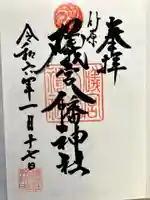 奉拝
竹原
礒宮八幡神社
令和六年一月十七日